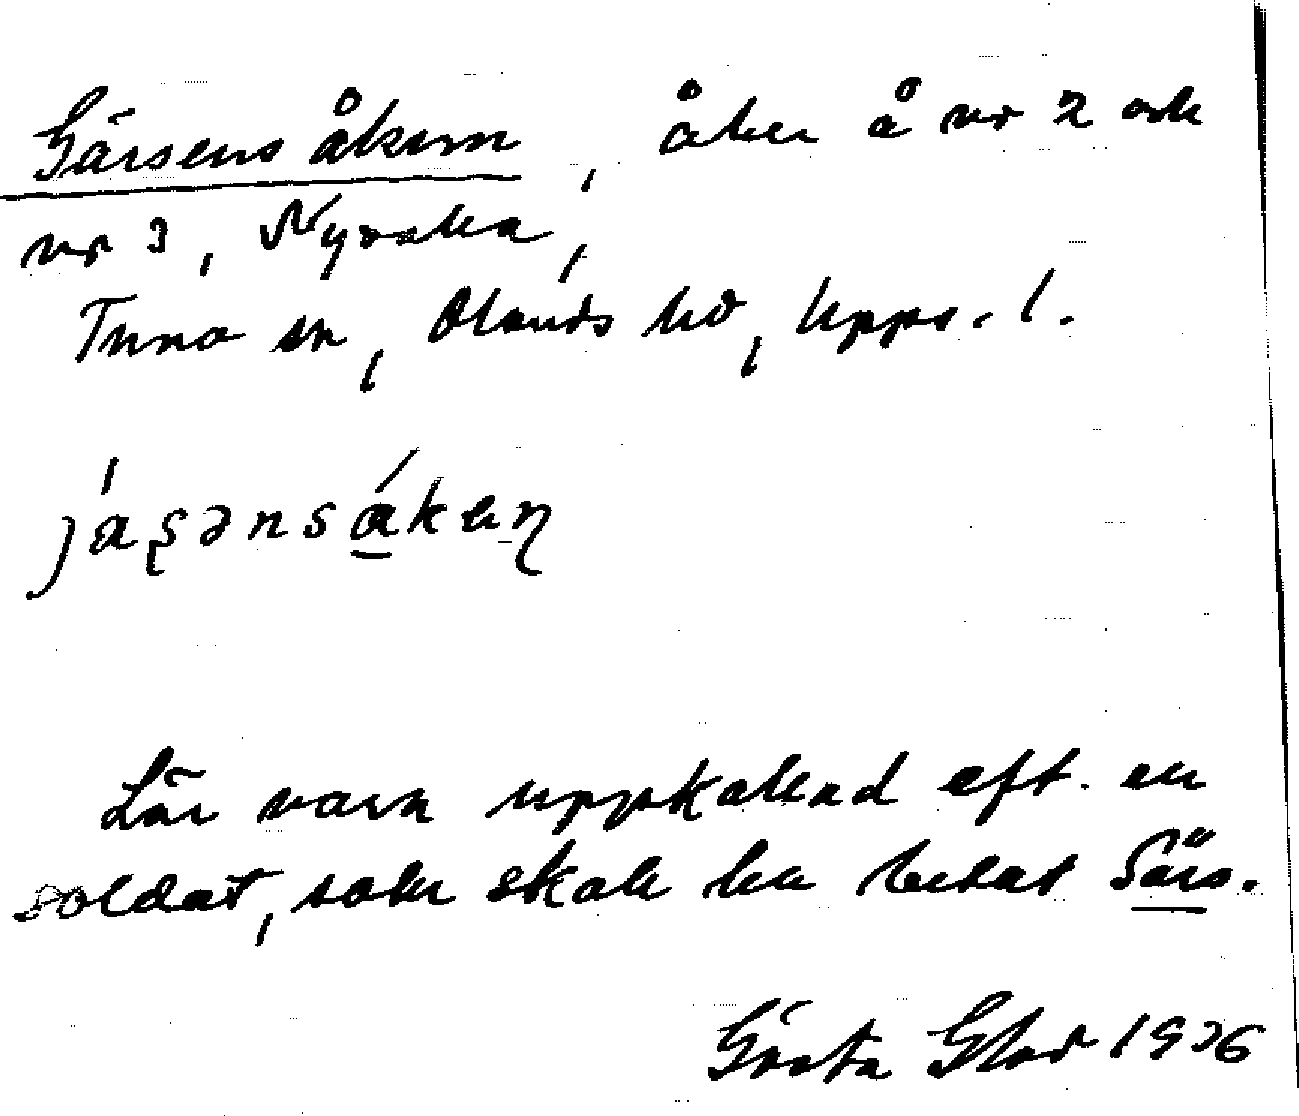 Gärsens åkern, åker å nr 2 och
nr 3, Nyvalla,
Tuna sn, Olands hd, Upps. l.
Lär vara uppkallad eft. en
soldat, som skall ha hetat Särs.
Gösta Glad 1936